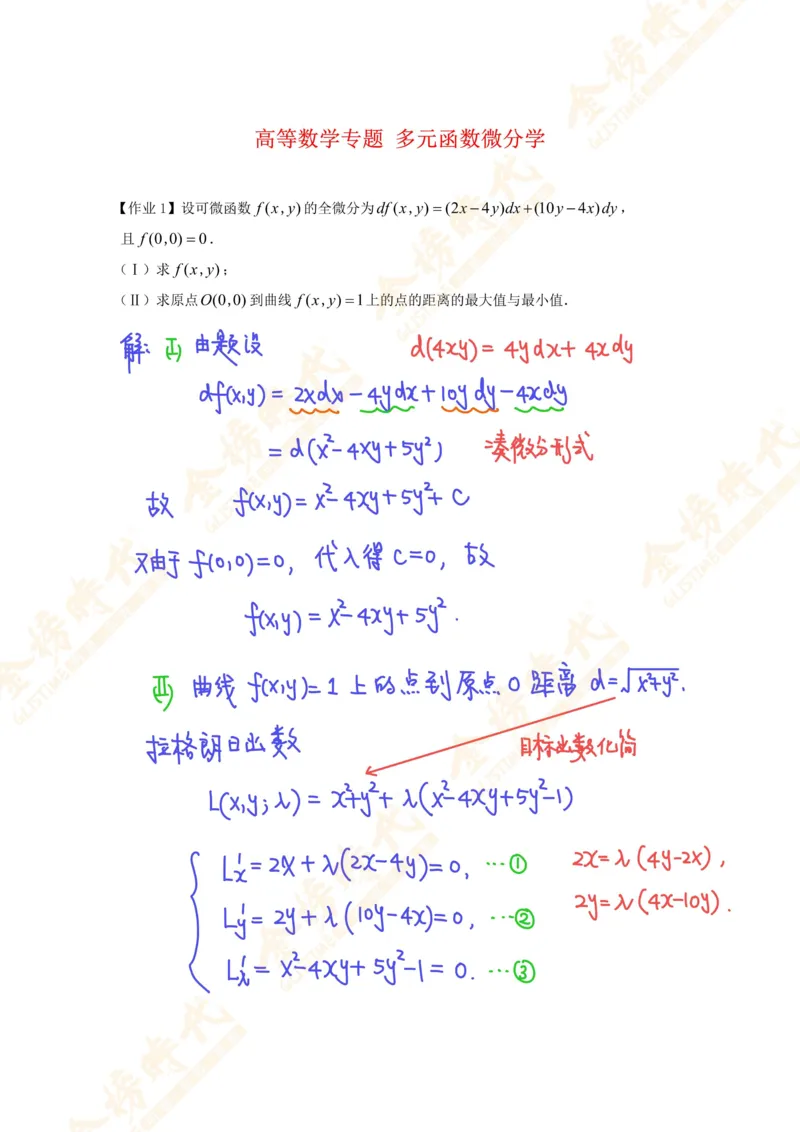 高等数学专题 多元函数微分学
【作业1】设可微函数 f(x,y)的全微分为df(x,y)=(2x-4y)dx+(10y-4x)dy，
且 f(0,0)=0．
（Ⅰ）求 f(x,y)；
（Ⅱ）求原点O(0,0)到曲线 f(x,y)=1上的点的距离的最大值与最小值．
解: (I) 由题设 d(4xy)= 4ydx+ 4xdy
df(x,y)= 2xdx-4ydx+10ydy-4xdy
= d(x²-4xy+5y²) 凑微分形式
故 f(x,y)= x²-4xy+5y²+ C
又由于 f(0,0)=0, 代入得 C=0, 故
f(x,y)= x²-4xy+5y².
(II) 曲线 f(x,y)=1 上的点到原点 O 距离 d=√x²+y².
拉格朗日函数 目标函数化简
L(x,y;λ)= x²+y²+ λ(x²-4xy+5y²-1)
L'x= 2x+ λ(2x-4y)=0, …① 2x=λ(4y-2x),
L'y= 2y+ λ(10y-4x)=0, …② 2y=λ(4x-10y).
L'λ= x²-4xy+5y²-1= 0. …③
金榜時代
GLISTIME